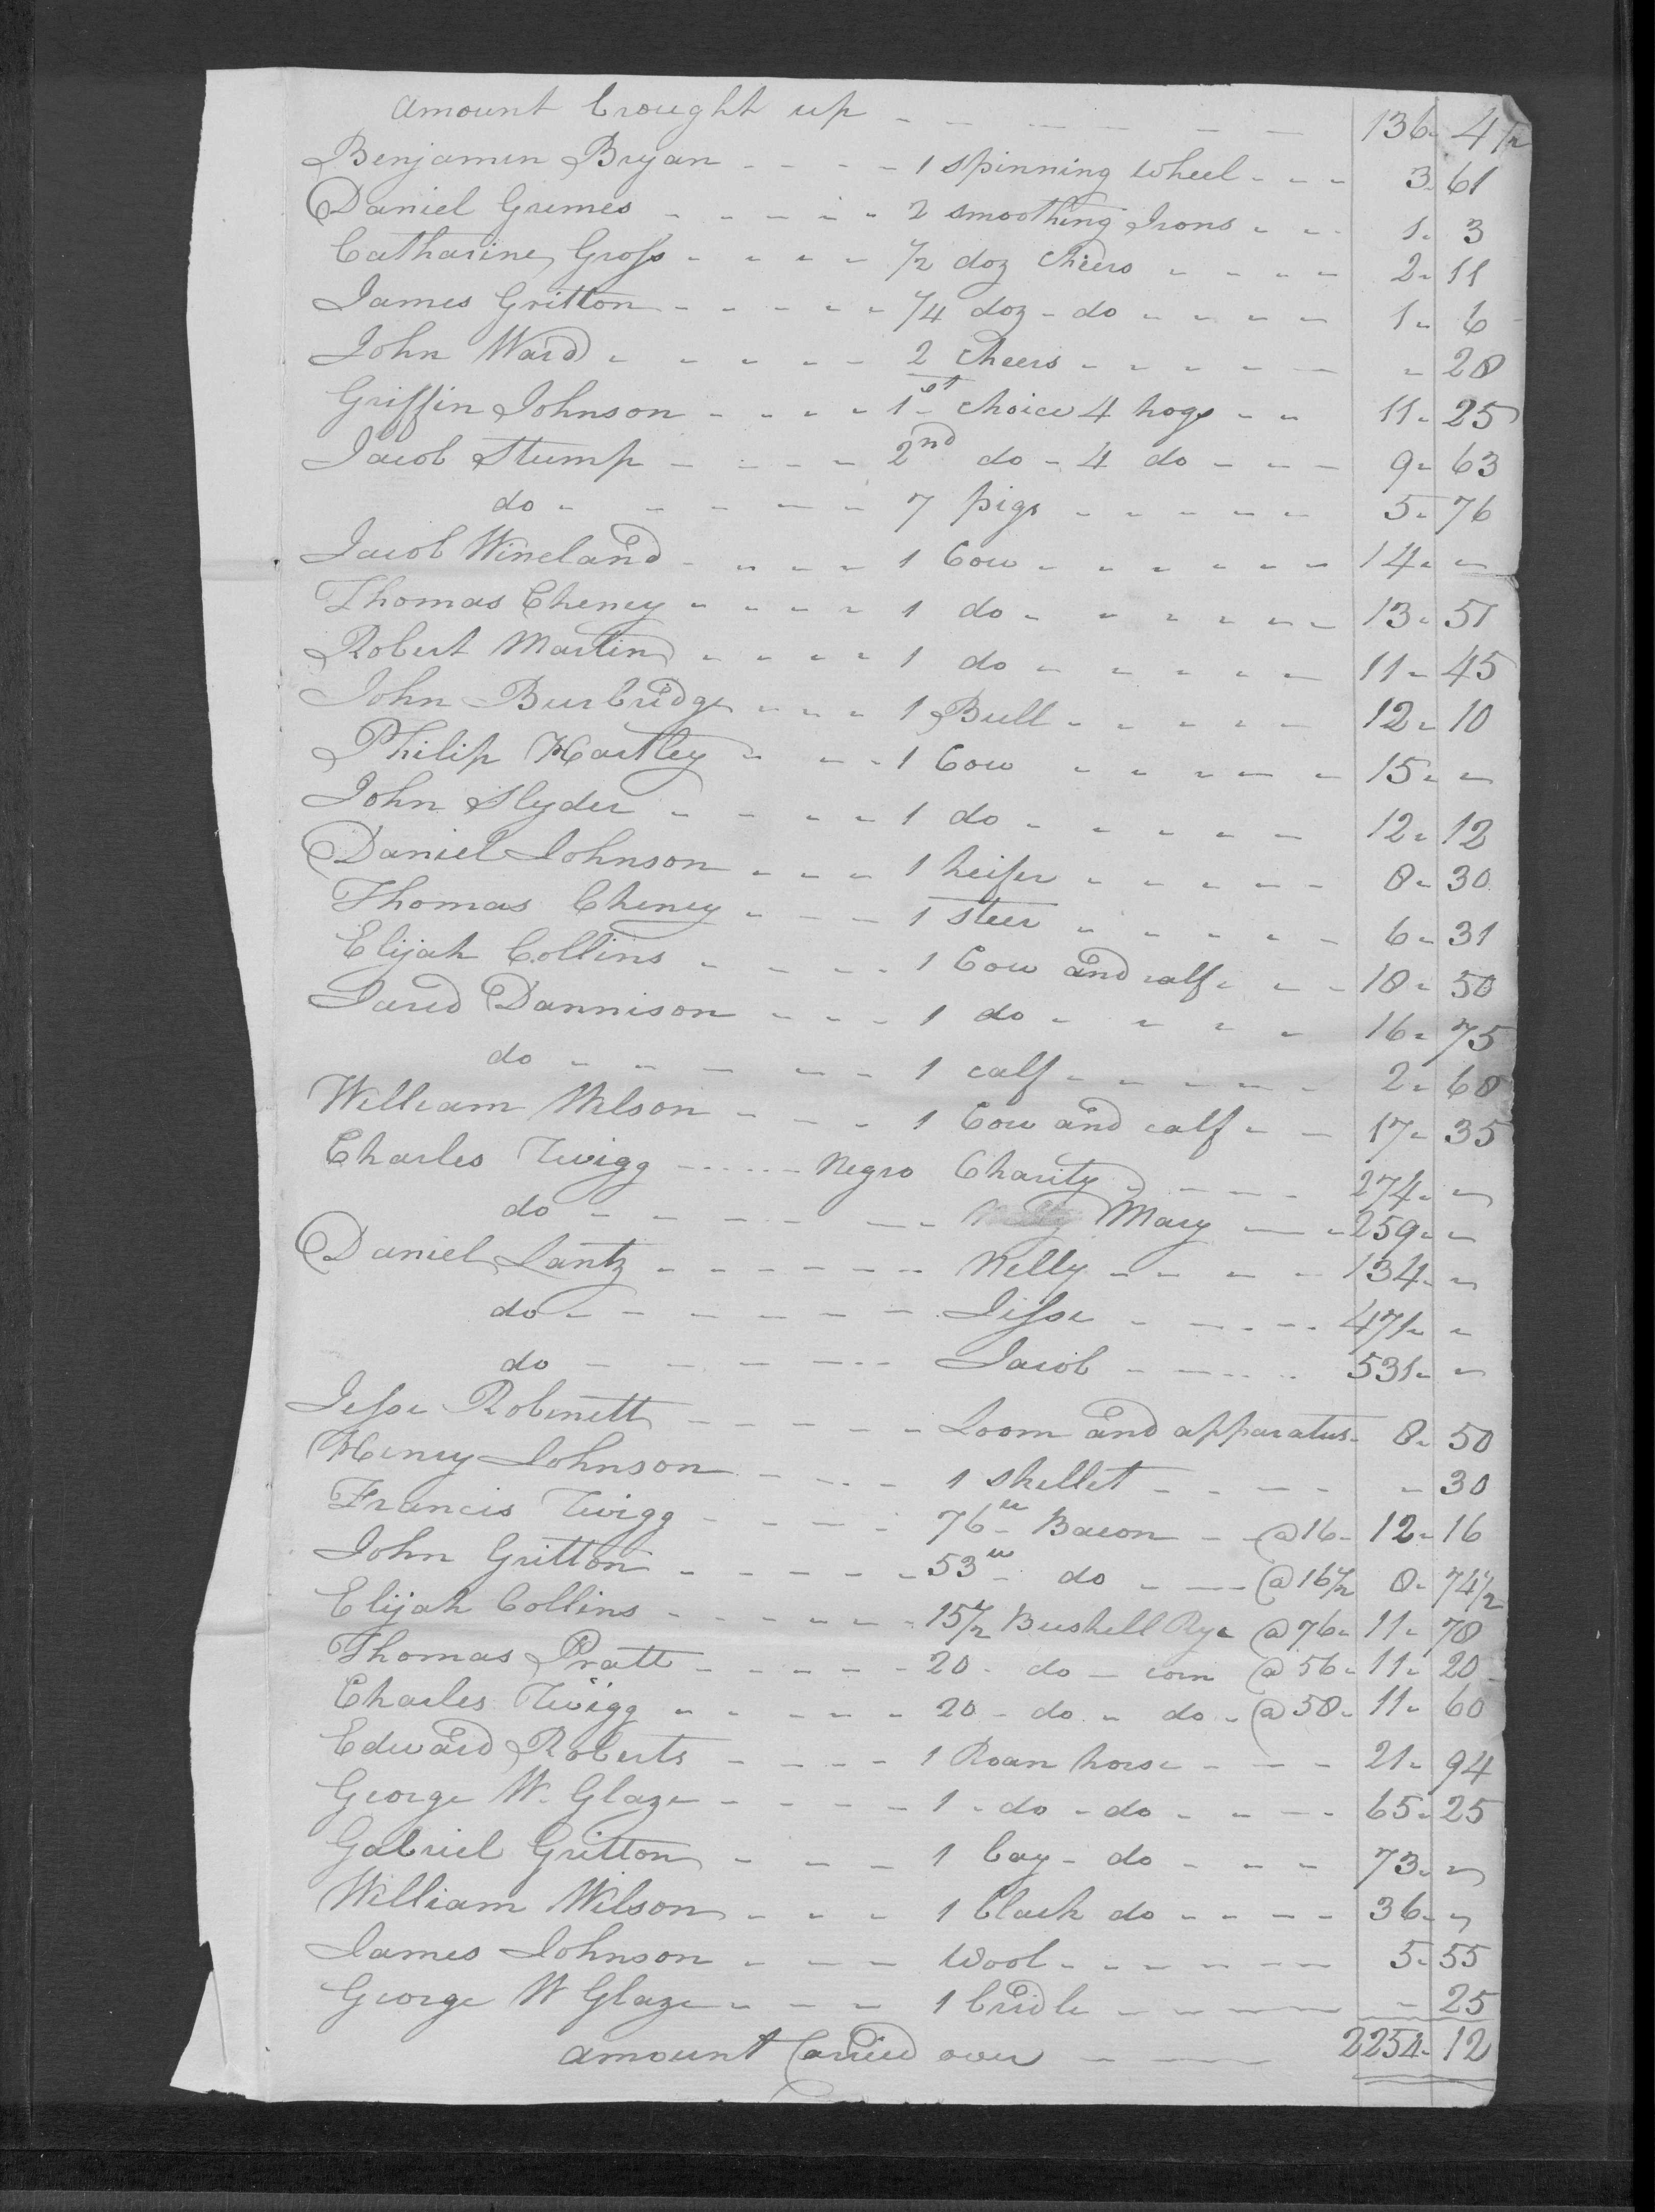 amount brought up - - - - - - 136- 4½
Benjamin Bryan - - - - 1 spinning wheel - - - 3- 61
Daniel Grimes - - - - - 2 smoothing Irons - - - 1- 3
Catharine Gross - - - - - ½ doz cheers - - - - - 2- 11
James Gritton - - - - - ¼ doz - do - - - - - 1- 6
John Ward - - - - - - 2 cheers - - - - - - - 28
Griffin Johnson - - - - 1st choice 4 hogs - - 11- 25
Jacob Stump - - - - 2nd do - 4 do - - - 9- 63
do - - - - - - 7 pigs - - - - - 5- 76
Jacob Wineland - - - - 1 Cow - - - - - - - 14- -
Thomas Cheney - - - - 1 do - - - - - - 13- 51
Robert Martin - - - - 1 do - - - - - - 11- 45
John Burbridge - - - - 1 Bull - - - - - 12- 10
Philip Hartley - - - 1 Cow - - - - - 15- -
John Slyder - - - - - 1 do - - - - - - 12- 12
Daniel Johnson - - - 1 heifer - - - - - - 8- 30
Thomas Cheney - - - 1 steer - - - - - - 6- 31
Elijah Collins - - - - 1 Cow and calf - - - 18- 50
Jared Dannison - - - - 1 do - - - - - 16- 75
do - - - - - - 1 calf - - - - - - 2- 68
William Wilson - - - 1 Cow and calf - - 17- 35
Charles Twigg - - - - - - Negro Charity - - - - 274- -
do - - - - - - Mary - - 259- -
Daniel Lantz - - - - - - - Nelly - - - - 134- -
do - - - - - - - Jesse - - - - - 471- -
do - - - - - - Jacob - - - - - 531- -
Jesse Robinett - - - - - - Loom and apparatus- 8- 50
Henry Johnson - - - - - 1 skellet - - - - - - 30
Francis Twigg - - - - - 76 lb Bacon - - @ 16- 12- 16
John Gritton - - - - - - 53 lb do - - - @ 16½ 8- 74½
Elijah Collins - - - - - - 15½ Bushell Rye @ 76- 11- 78
Thomas Pratt - - - - - - 20 - do - corn @ 56- 11- 20
Charles Twigg - - - - - 20 - do - do - @ 58- 11- 60
Edward Roberts - - - - 1 Roan horse - - - 21- 94
George W. Glaze - - - - - 1 - do - do - - - - 65- 25
Gabriel Gritton - - - 1 bay - do - - - 73- -
William Wilson - - - 1 black do - - - - 36- -
James Johnson - - - wool - - - - - - - 5- 55
George W Glaze - - - 1 bridle - - - - - - 25
amount Carried over - - - 2254- 12